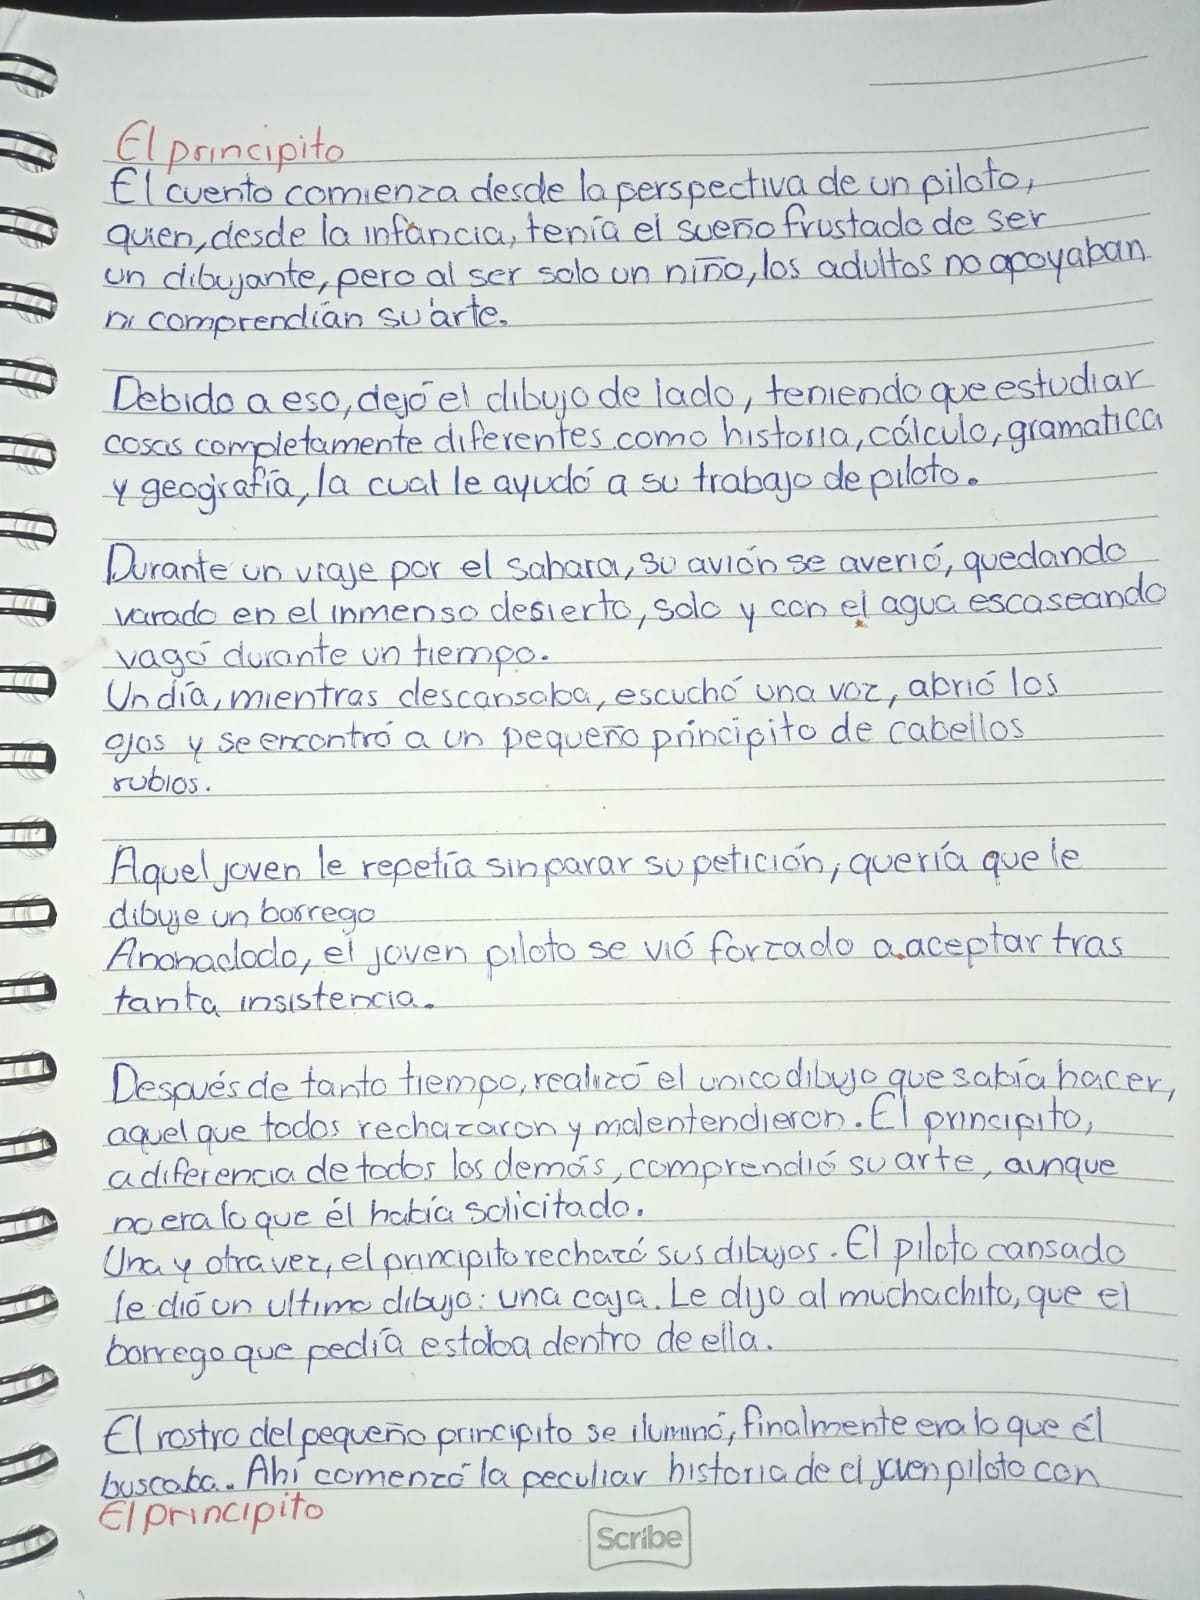 El principito
El cuento comienza desde la perspectiva de un piloto,
quien, desde la infancia, tenía el sueño frustado de ser
un dibujante, pero al ser solo un niño, los adultos no apoyaban
ni comprendían su arte.
Debido a eso, dejó el dibujo de lado, teniendo que estudiar
cosas completamente diferentes como historia, cálculo, gramatica
y geografía, la cual le ayudó a su trabajo de piloto.
Durante un viaje por el sahara, su avión se averió, quedando
varado en el inmenso desierto, solo y con el agua escaseando
vagó durante un tiempo.
Un día, mientras descansaba, escuchó una voz, abrió los
ojos y se encontró a un pequeño principito de cabellos
rubios.
Aquel joven le repetía sin parar su petición, quería que le
dibuje un borrego
Anonadado, el joven piloto se vió forzado a aceptar tras
tanta insistencia.
Después de tanto tiempo, realizó el unico dibujo que sabía hacer,
aquel que todos rechazaron y malentendieron. El principito,
a diferencia de todos los demás, comprendió su arte, aunque
no era lo que él había solicitado.
Una y otra vez, el principito rechazó sus dibujos. El piloto cansado
le dió un ultimo dibujo: una caja. Le dijo al muchachito, que el
borrego que pedía estaba dentro de ella.
El rostro del pequeño principito se iluminó, finalmente era lo que él
buscaba. Ahí comenzó la peculiar historia de el joven piloto con
El principito
Scribe